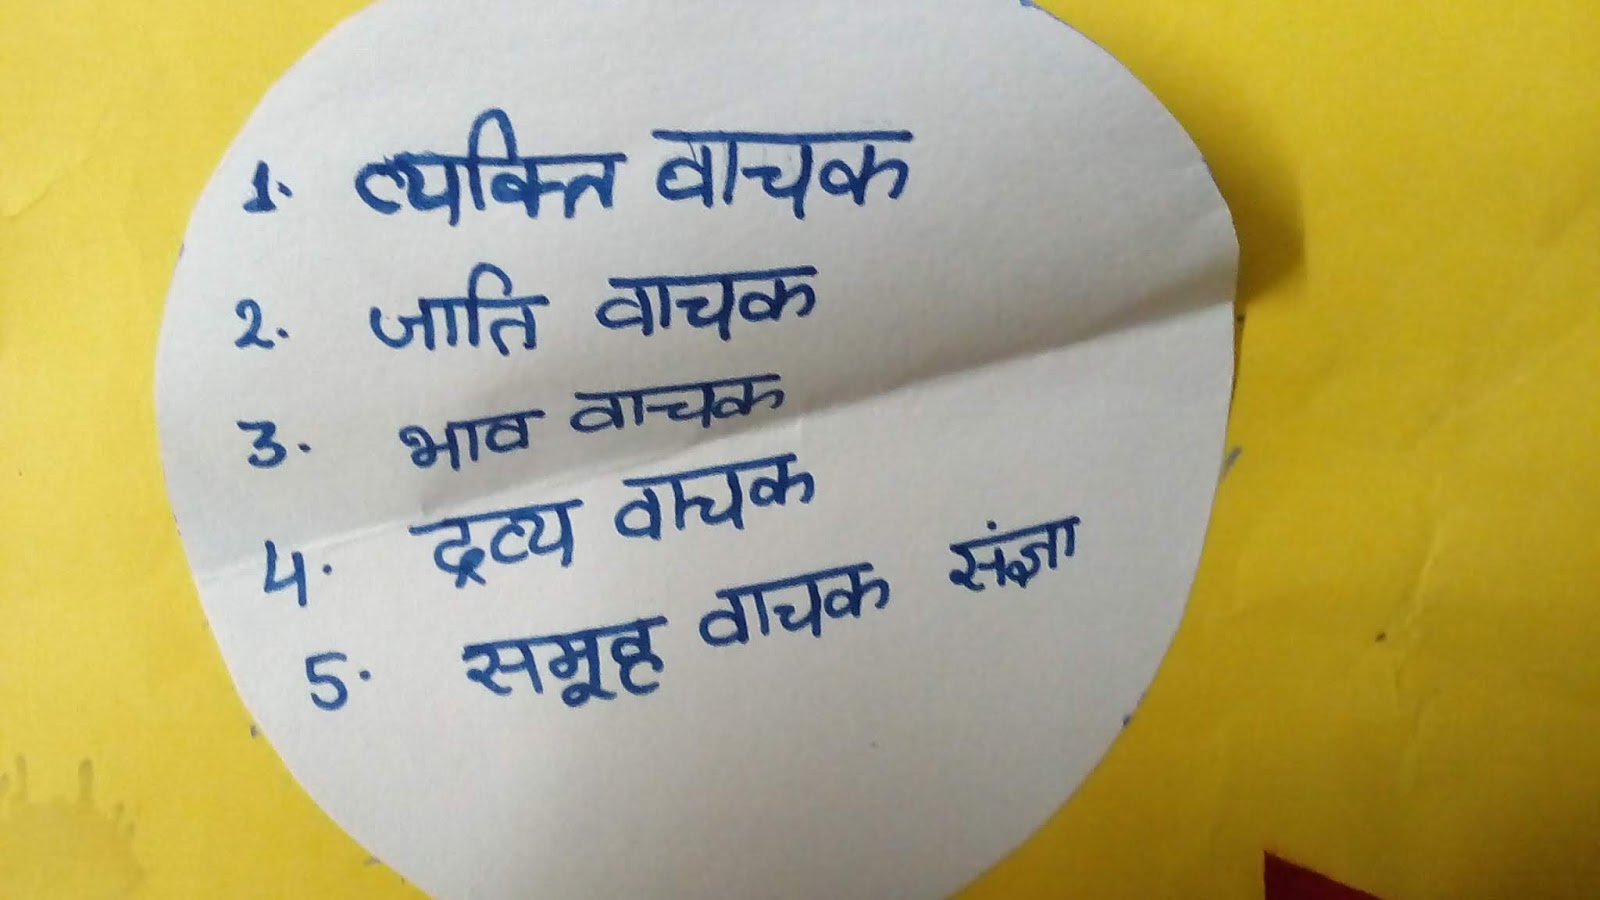 1. व्यक्ति वाचक
2. जाति वाचक
3. भाव वाचक
4. द्रव्य वाचक
5. समूह वाचक संज्ञा